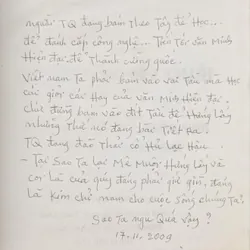 người TQ đang bám theo Tây để Học...
để đánh cắp công nghệ... Tiến Tới văn Minh
Hiện đại để Thành Cường quốc.
Việt nam Ta phải bám vào vai Tiến văn Học
của giới các Hay của văn Minh Hiện đại
chứ đừng bám vào đít Tàu để Hưởng Lây
những Thứ nó đang bài Tiết ra.
TQ đang đào Thải cổ Hủ Lạc Hậu.
- Tại Sao Ta lại Mê Muội Hưởng Lây và
coi là của quý đáng phải giữ gìn, đáng
là Kim chỉ nam cho cuộc sống chúng Ta?
Sao Ta ngu Quá vậy?
17-11-2009